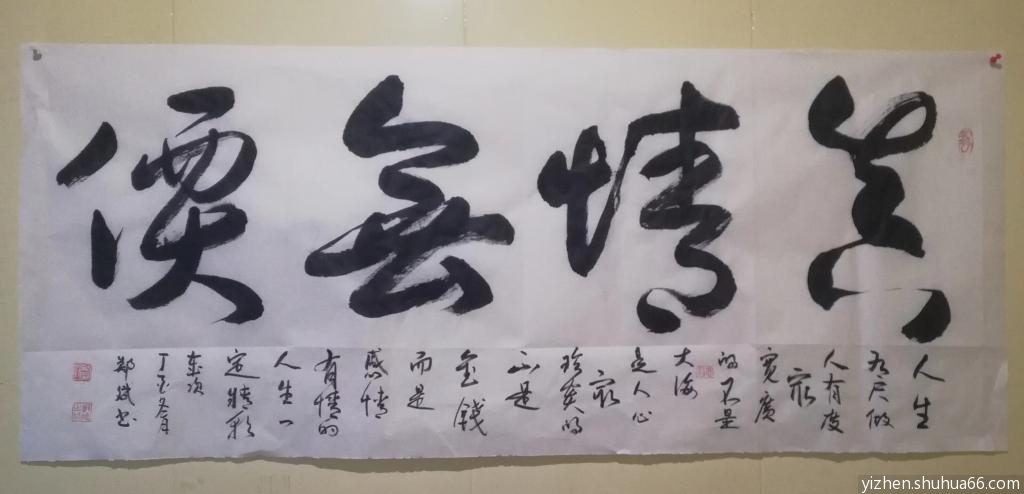 真情無價
人生
有尺做
人有度
最
寬廣
的不是
大海
是人心
最
珍贵的
不是
金錢
而是
感情
有情的
人生一
定精彩
歲次
丁酉冬月
郑斌书
yizhen.shuhua66.com